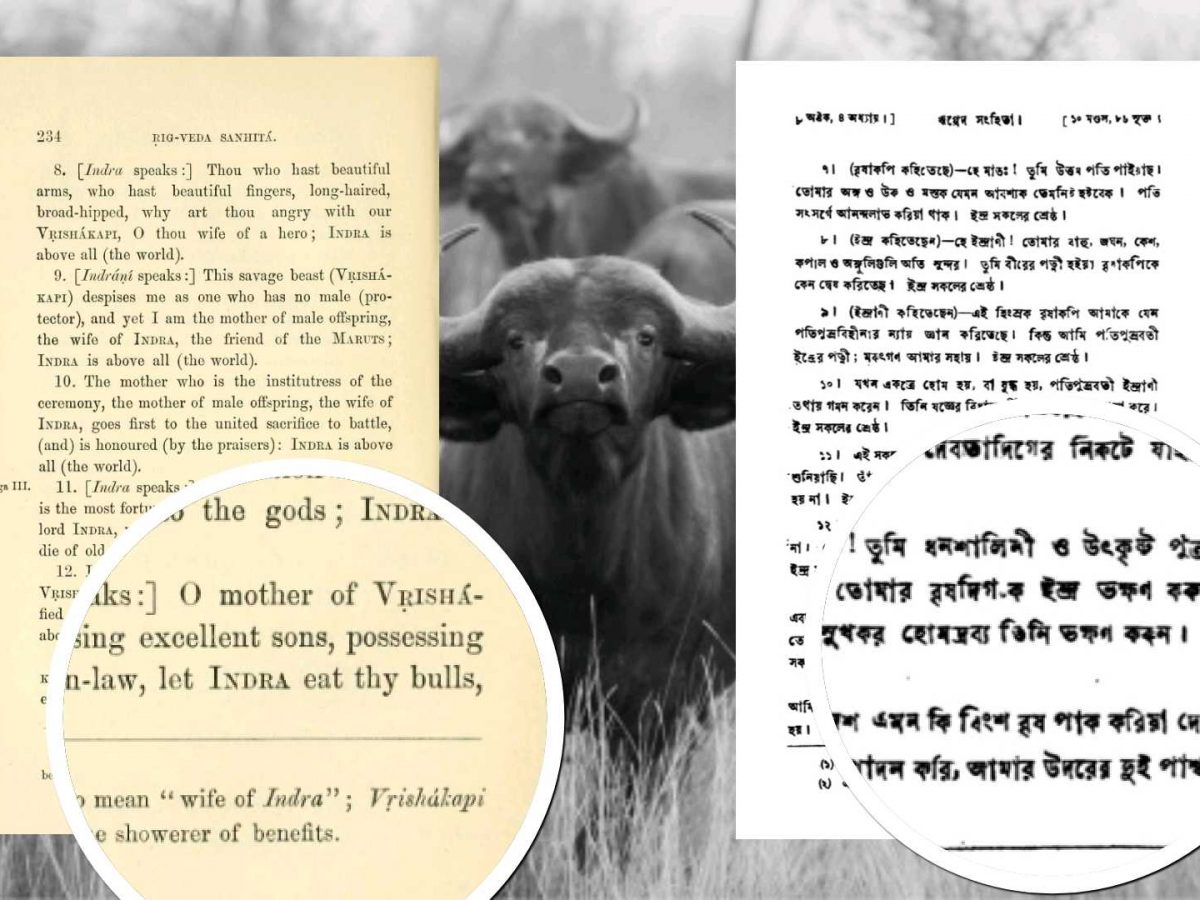 234
ṚIG-VEDA SANHITÁ.
8. [Indra speaks:] Thou who hast beautiful
arms, who hast beautiful fingers, long-haired,
broad-hipped, why art thou angry with our
VṚISHÁKAPI, O thou wife of a hero; INDRA is
above all (the world).
9. [Indráṇí speaks:] This savage beast (VṚISHÁ-
KAPI) despises me as one who has no male (pro-
tector), and yet I am the mother of male offspring,
the wife of INDRA, the friend of the MARUTS;
INDRA is above all (the world).
10. The mother who is the institutress of the
ceremony, the mother of male offspring, the wife of
INDRA, goes first to the united sacrifice to battle,
(and) is honoured (by the praisers): INDRA is above
all (the world).
III. 11. [Indra speaks
is the most
lord INDRA,
die of old
12.
fied
to the gods; INDRA
O mother of VṚISHÁ-
excellent sons, possessing
let INDRA eat thy bulls,
mean "wife of Indra"; Vṛishákapi
showerer of benefits.
৮ অষ্টক, ৪ অধ্যায়।]
ঋগ্বেদ সংহিতা।
[১০ মণ্ডল, ৮৬ সূক্ত।
৭। (বৃষাকপি কহিতেছে)—হে মাতঃ! তুমি উত্তম পতি পাইয়াছ।
তোমার অঙ্গ ও উরু ও মস্তক যেমন আবশ্যক তেমনিই হইবেক। পতি
সংসর্গে আনন্দলাভ করিয়া থাক। ইন্দ্র সকলের শ্রেষ্ঠ।
৮। (ইন্দ্র কহিতেছেন)—হে ইন্দ্রাণী! তোমার বাহু, জঘন, কেশ,
কপাল ও অঙ্গুলিগুলি অতি সুন্দর। তুমি বীরের পত্নী হইয়া বৃষাকপিকে
কেন দ্বেষ করিতেছ। ইন্দ্র সকলের শ্রেষ্ঠ।
৯। (ইন্দ্রাণী কহিতেছেন)—এই হিংস্রক বৃষাকপি আমাকে যেন
পতিপুত্রবিহীনার ন্যায় জ্ঞান করিতেছে। কিন্তু আমি পতিপুত্রবতী
ইন্দ্রের পত্নী; মরুৎগণ আমার সহায়। ইন্দ্র সকলের শ্রেষ্ঠ।
১০। যখন একত্রে হোম হয়, বা যুদ্ধ হয়, পতিপুত্রবতী ইন্দ্রাণী
তথায় গমন করেন। তিনি যজ্ঞের করে।
ইন্দ্র সকলের শ্রেষ্ঠ।
১১। এই
শুনিয়াছি।
হয় না।
১২
না।
ইন্দ্র
হয়।
(১)
(২)
নিকটে
! তুমি ধনশালিনী ও উৎকৃষ্ট
তোমার বৃষদিগকে ইন্দ্র ভক্ষণ
সুখকর হোমদ্রব্য তিনি ভক্ষণ করুন।
এমন কি বিংশ বৃষ পাক করিয়া
করি, আমার উদরের দুই